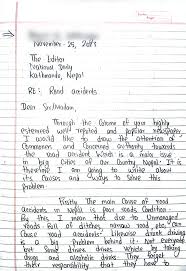 November - 25, 2013
The Editor
National Daily
Kathmandu, Nepal
RE: Road accidents
Dear Sir/Madam,
Through the Column of your highly
esteemed well reputed and popular newspaper
I would like to draw the attention of
Commoners and Concerned authority towards
the road accident which is a main issue
in Big Cities of our Country Nepal. It is
therefore I am going to write about
its Causes and ways to Solve this
problem.
Firstly The main Cause of road
accidents in Nepal is poor roads Condition.
By this I mean that due to Damaged
roads full of ditches, narrow roads, can
Cause road accidents. Likewise drunk driving
is a big problem behind it. Not everyone
but Some drivers drives while taking
drugs and alcoholic drinks. They forget
their responsibility that they have to